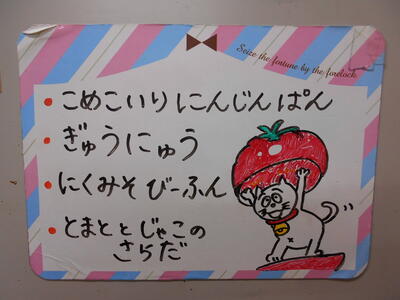 Seize the fortune by the forelock
• こめこいりにんじんぱん
• ぎゅうにゅう
• にくみそびーふん
• とまととじゃこの
さらだ